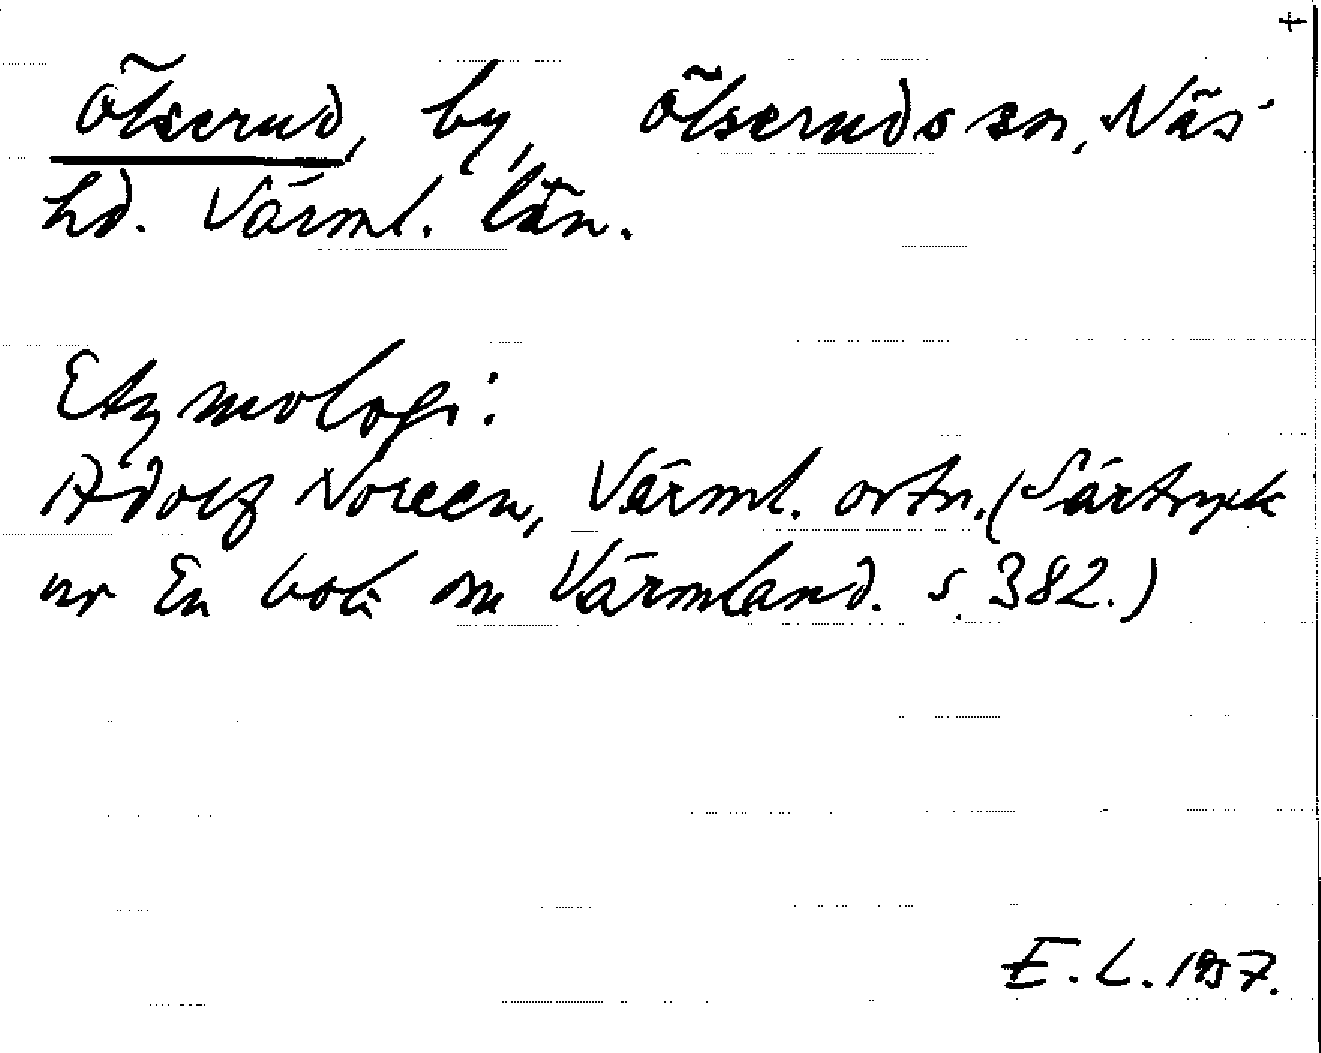 +
Ölserud, by, Ölseruds sn, Näs
hd. Värml. län.
Etymologi:
Adolf Noreen, Värml. ortn. (Särtryck
ur En bok om Värmland. s. 382.)
E. L. 1957.